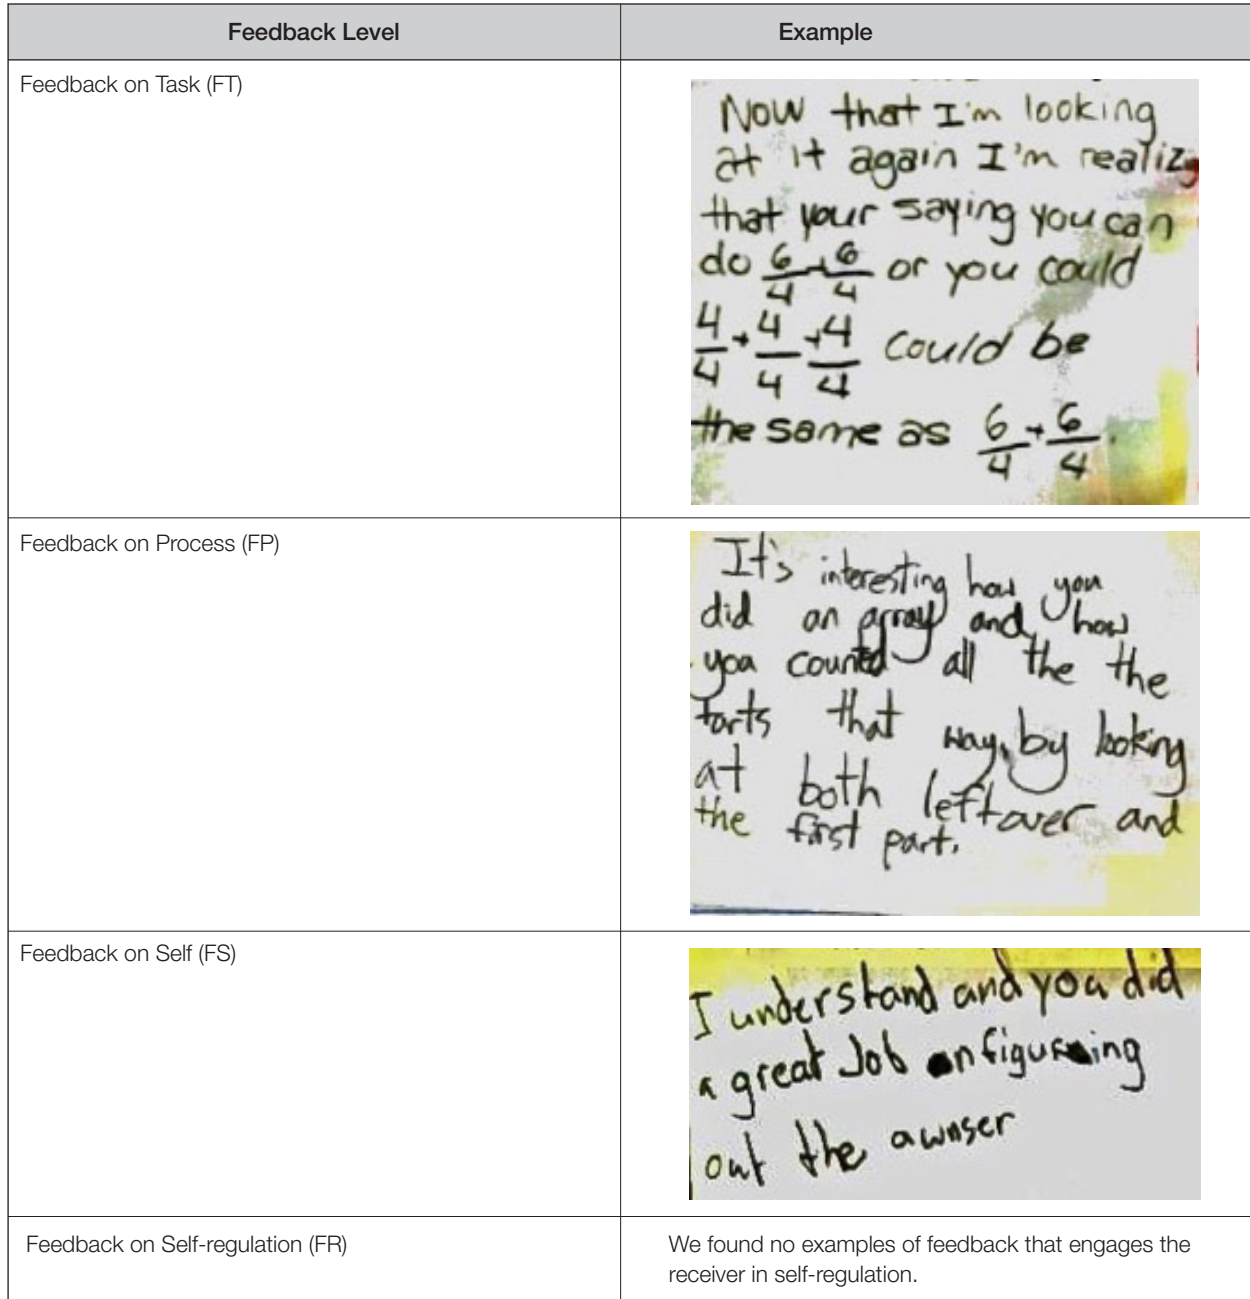 Feedback Level
Example
Feedback on Task (FT)
Now that I'm looking
at it again I'm realiz
that your saying you can
do 6/4 + 6/4 or you could
4/4 + 4/4 + 4/4 could be
the same as 6/4 + 6/4.
Feedback on Process (FP)
It's interesting how you
did an array and how
you counted all the the
tarts that way, by looking
at both leftover and
the first part.
Feedback on Self (FS)
I understand and you did
a great Job on figurning
out the awnser
Feedback on Self-regulation (FR)
We found no examples of feedback that engages the
receiver in self-regulation.